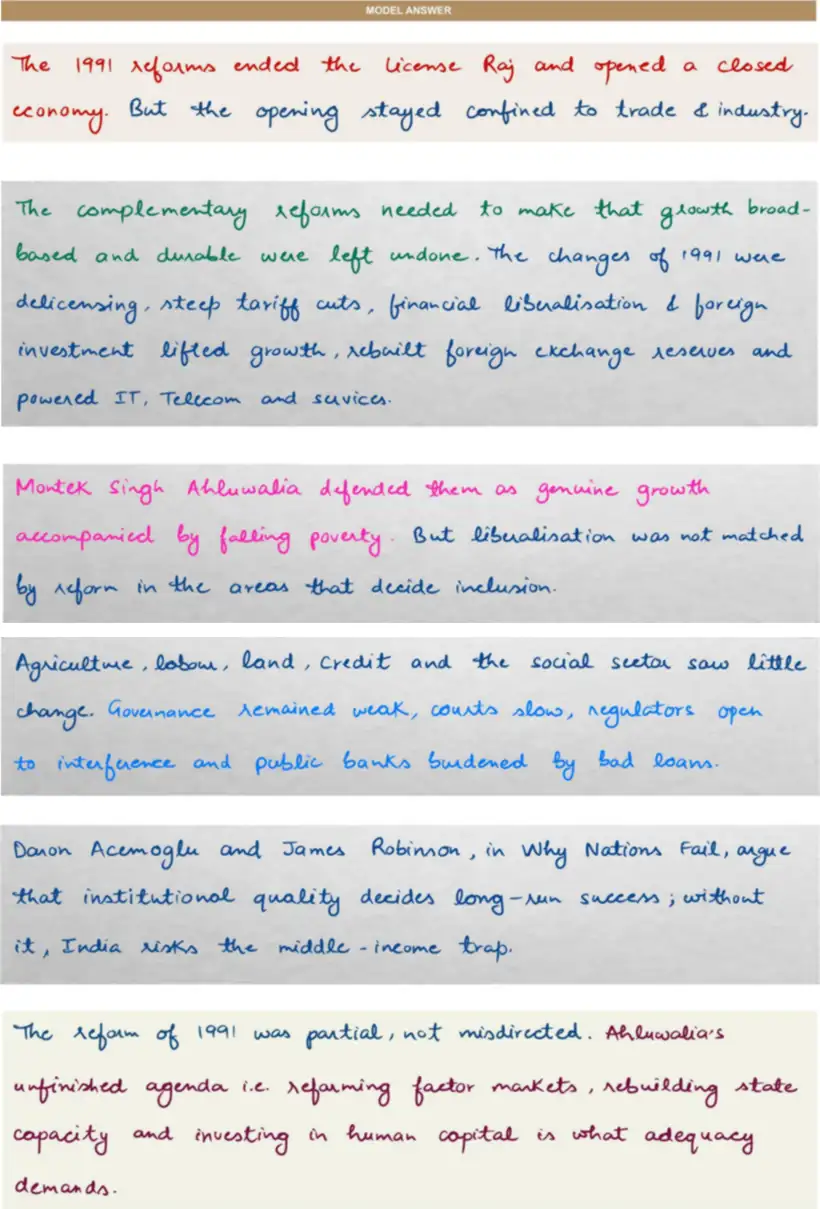 MODEL ANSWER
The 1991 reforms ended the License Raj and opened a closed
economy. But the opening stayed confined to trade & industry.
The complementary reforms needed to make that growth broad-
based and durable were left undone. The changes of 1991 were
delicensing, steep tariff cuts, financial liberalisation & foreign
investment lifted growth, rebuilt foreign exchange reserves and
powered IT, Telecom and services.
Montek Singh Ahluwalia defended them as genuine growth
accompanied by falling poverty. But liberalisation was not matched
by reform in the areas that decide inclusion.
Agriculture, labour, land, credit and the social sector saw little
change. Governance remained weak, courts slow, regulators open
to interference and public banks burdened by bad loans.
Daron Acemoglu and James Robinson, in Why Nations Fail, argue
that institutional quality decides long-run success; without
it, India risks the middle-income trap.
The reform of 1991 was partial, not misdirected. Ahluwalia's
unfinished agenda i.e. reforming factor markets, rebuilding state
capacity and investing in human capital is what adequacy
demands.